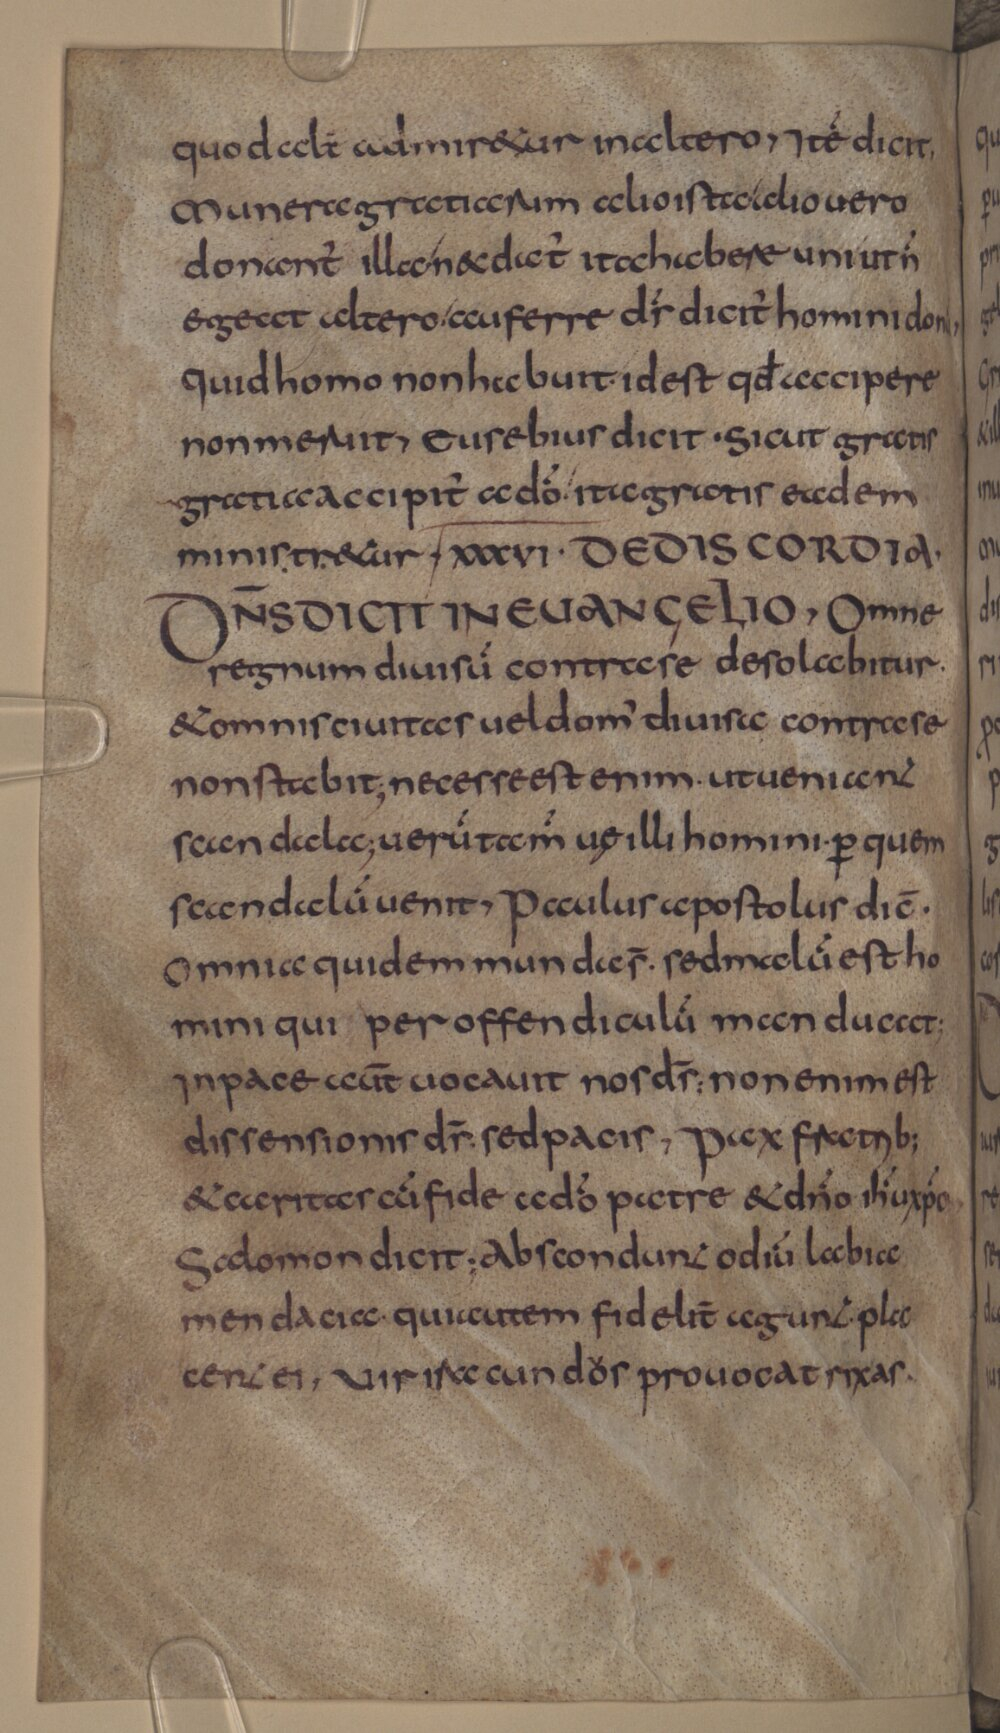 quod alt̄ admir&ur in altero, Itē dicit,
Munera gratiarum alio ista alio uero
donant̄ illa n& dat̄ ita habere uni ut ñ
egeat altero auferre dr̄ dicit̄ homini don
quid homo non habuit· id est qđ accipere
non meruit, Eusebius dicit · Sicut gratis
gratia accipit̄ a dō· ita gratis eadem
ministr&ur · XXXVI · DE DISCORDIA·
DN̄S DICIT IN EUANGELIO, Omne
regnum diuisū contra se desolabitur·
& omnis ciuitas uel dom' diuisa contra se
non stabit; necesse est enim· ut ueniant
scandala; uerūtam̄ uę illi homini· ꝑ quem
scandalū uenit, Paulus apostolus dic̄ ·
Omnia quidem munda s̄· sed malū est ho
mini qui per offendiculū manducat;
in pace aūt uocauit nos ds̄: non enim est
dissensionis ds̄· sed pacis, Pax fratrib;
& caritas cū fide a dō patre & dn̄o ih̄u xp̄o
Salomon dicit; Abscondunt odiū labia
mendacia· qui autem fidelit̄ agunt· pla
cent ei, Uir iracundos prouocat rixas·